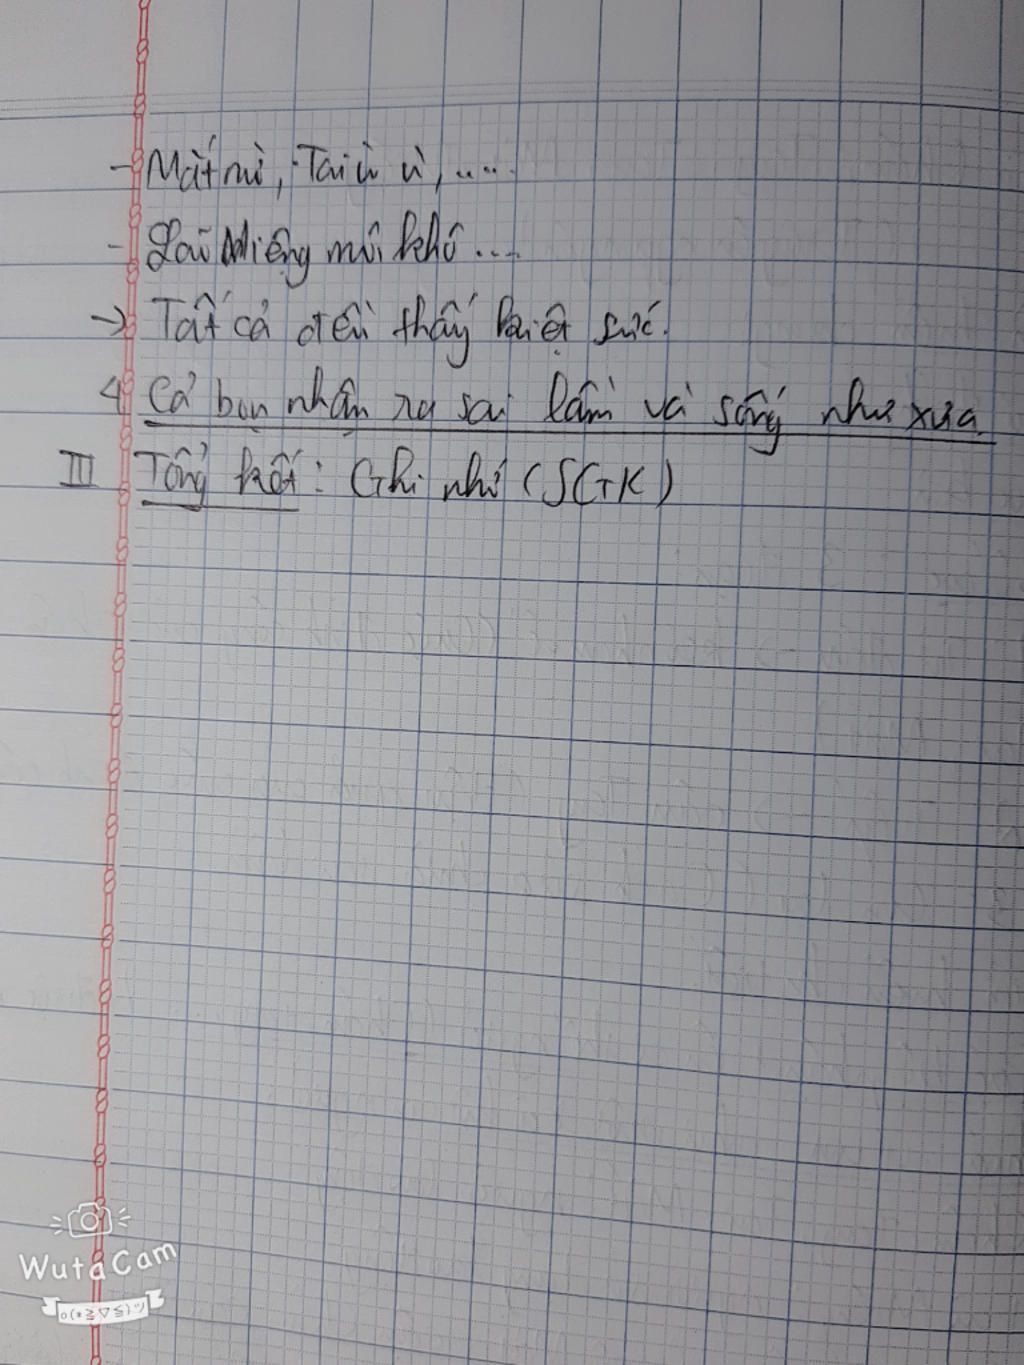 - Mắt mù, Tai ù ì, ....
- Lão Miệng môi khô ....
-> Tất cả đều thấy kiệt sức.
4 Cả bọn nhận ra sai lầm và sống như xưa.
III Tổng kết: Ghi nhớ (SGK)
WutaCam